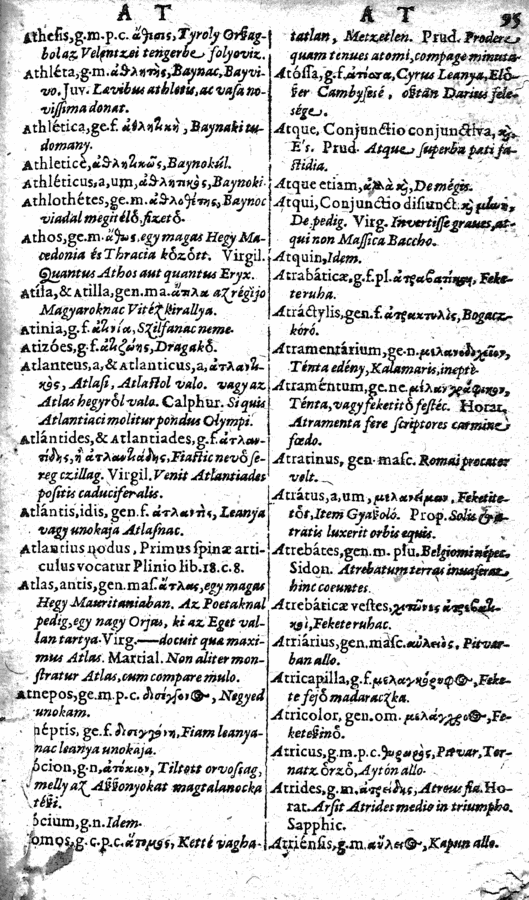 A T
Athesis, g.m.p.c. ἄθισις, Tyroly Orßag-
bol az Velentzei tengerbe folyoviz.
Athléta, g.m. ἀθλητής, Baynac, Bayvi-
vo. Juv. Lævibus athletis, ac vasa no-
vissima donat.
Athlética, ge.f. ἀθλητικὴ, Baynaki tu-
domany.
Athleticè, ἀθλητικῶς, Baynokúl.
Athléticus, a, um, ἀθλητικὸς, Baynoki.
Athlothétes, ge.m. ἀθλοθέτης, Baynoc
viadal megitélő, fizető.
Athos, ge.m. ἄθως, egy magas Hegy Ma-
cedonia és Thracia között. Virgil.
Quantus Athos aut quantus Eryx.
Atila, & Atilla, gen.ma. az régi jo
Magyaroknac Vitéz kirallya.
Atinia, g.f. Szilfanac neme.
Atizóes, g.f. Dragakő.
Atlanteus, a, & Atlanticus, a, ἀτλαντι-
κὸς, Atlasi, Atlastol valo. vagy az
Atlas hegyről valo. Calphur. Si quis
Atlantiaci molitur pondus Olympi.
Atlántides, & Atlantiades, g.f. ἀτλαν-
τίδης, ἢ Fiastic nevő se-
reg czillag. Virgil. Venit Atlantiades
positis caducifer alis.
Atlántis, idis, gen.f. Leanja
vagy unokaja Atlasnac.
Atlantius nodus, Primus spinæ arti-
culus vocatur Plinio lib. 18. c. 8.
Atlas, antis, gen.mas. ἄτλας, egy magas
Hegy Mauritaniaban. Az Poetaknal
pedig, egy nagy Orjas, ki az Eget val-
lan tartya. Virg.—docuit quæ maxi-
mus Atlas. Martial. Non aliter mon-
stratur Atlas, cum compare mulo.
Atnepos, ge.m.p.c. Negyed
unokam.
néptis, ge.f. Fiam leanya-
nac leanya unokaja.
ócion, g.n. ἀτόκιον, Tiltott orvossag,
melly az Aßßonyokat magtalanocka
téßi.
ócium, g.n. Idem.
omos, g.c.p.c. ἄτομος, Ketté vagha-
A T 95
tatlan, Metzetlen. Prud. Prodere
quam tenues atomi, compage minuta.
Atóssa, g.f. ἀτόσσα, Cyrus Leanya, Elő-
ßer Cambysesé, oßtán Darius fele-
sége.
Atque, Conjunctio conjunctiva,
E's. Prud. Atque superba pati fa-
stidia.
Atque etiam, De mégis.
Atqui, Conjunctio disiunct.
De pedig. Virg. Invertisse graves, at-
qui non Massica Baccho.
Atquin, Idem.
Atrabáticæ, g.f.pl. Feke-
teruha.
Atráctylis, gen.f. ἀτρακτυλὶς, Bogacz-
kóró.
Atramentárium, ge.n. μελανοδοχεῖον,
Ténta edény, Kalamaris, inepte.
Atraméntum, ge.ne.
Ténta, vagy feketitő festéc. Horat.
Atramenta fere scriptores carmine
fœdo.
Atratinus, gen. masc. Romai procater
volt.
Atrátus, a, um, μελανείμων, Feketite-
tőt, Item Gyaßoló. Prop. Solis & a-
tratis luxerit orbis equis.
Atrebátes, gen.m. plu. Belgiomi népec.
Sidon. Atrebatum terras invaserat
hinc coeuntes.
Atrebáticæ vestes,
Feketeruhac.
Atriárius, gen.masc. Pitvar-
ban allo.
Atricapilla, g.f. μελαγκόρυφος, Feke-
te fejő madaraczka.
Atricolor, gen.om. μελάγχρος, Fe-
keteßinő.
Atricus, g.m.p.c. θυρωρὸς, Pitvar, Tor-
natz őrző, Aytón allo.
Atrides, g.m. ἀτρείδης, Atreus fia. Ho-
rat. Arsit Atrides medio in triumpho.
Sapphic.
Atriénsis, g.m. Kapun allo.